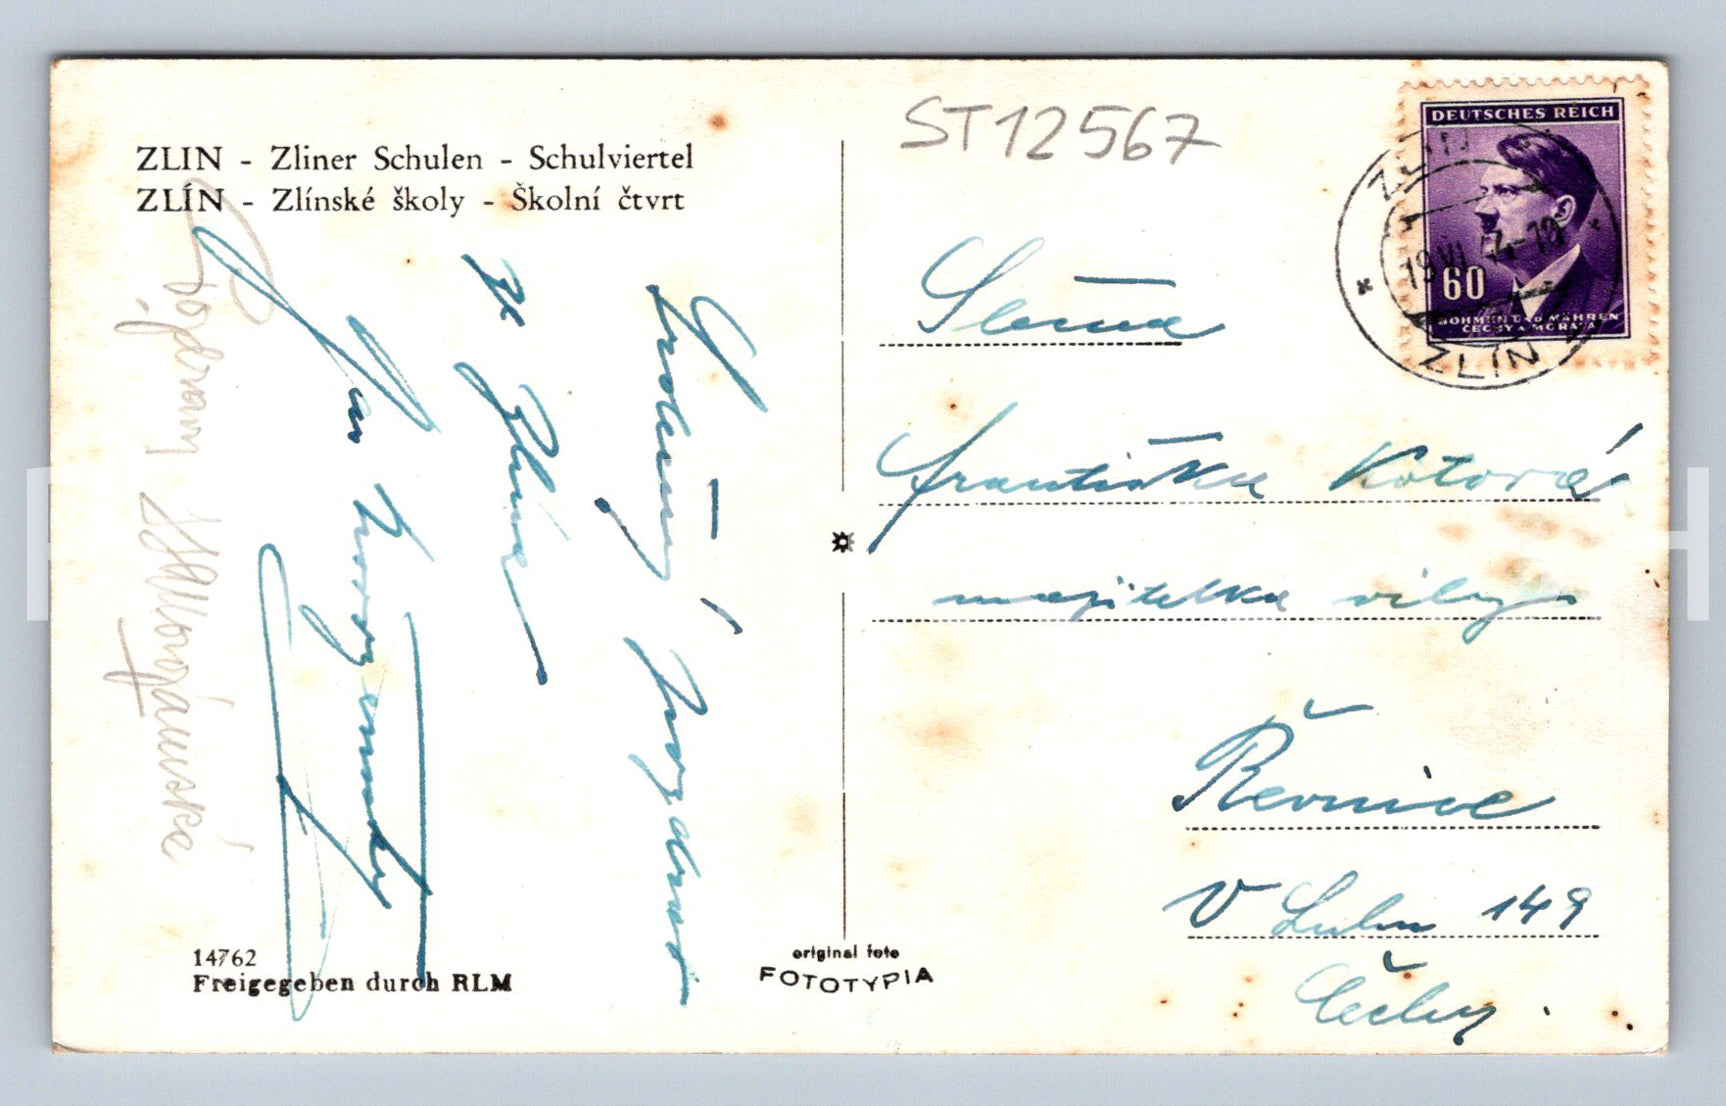 ZLIN - Zliner Schulen - Schulviertel
ZLÍN - Zlínské školy - Školní čtvrt
ST12567
DEUTSCHES REICH
60
BÖHMEN UND MÄHREN
ČECHY A MORAVA
ZLIN
19 VI 44-18
ZLÍN
Srdečný pozdrav
ze Zlína
Jan
Slečna
Františka Kotová
majitelka vily
Řevnice
V Luhu 149
Čechy.
14762
Freigegeben durch RLM
original foto
FOTOTYPIA